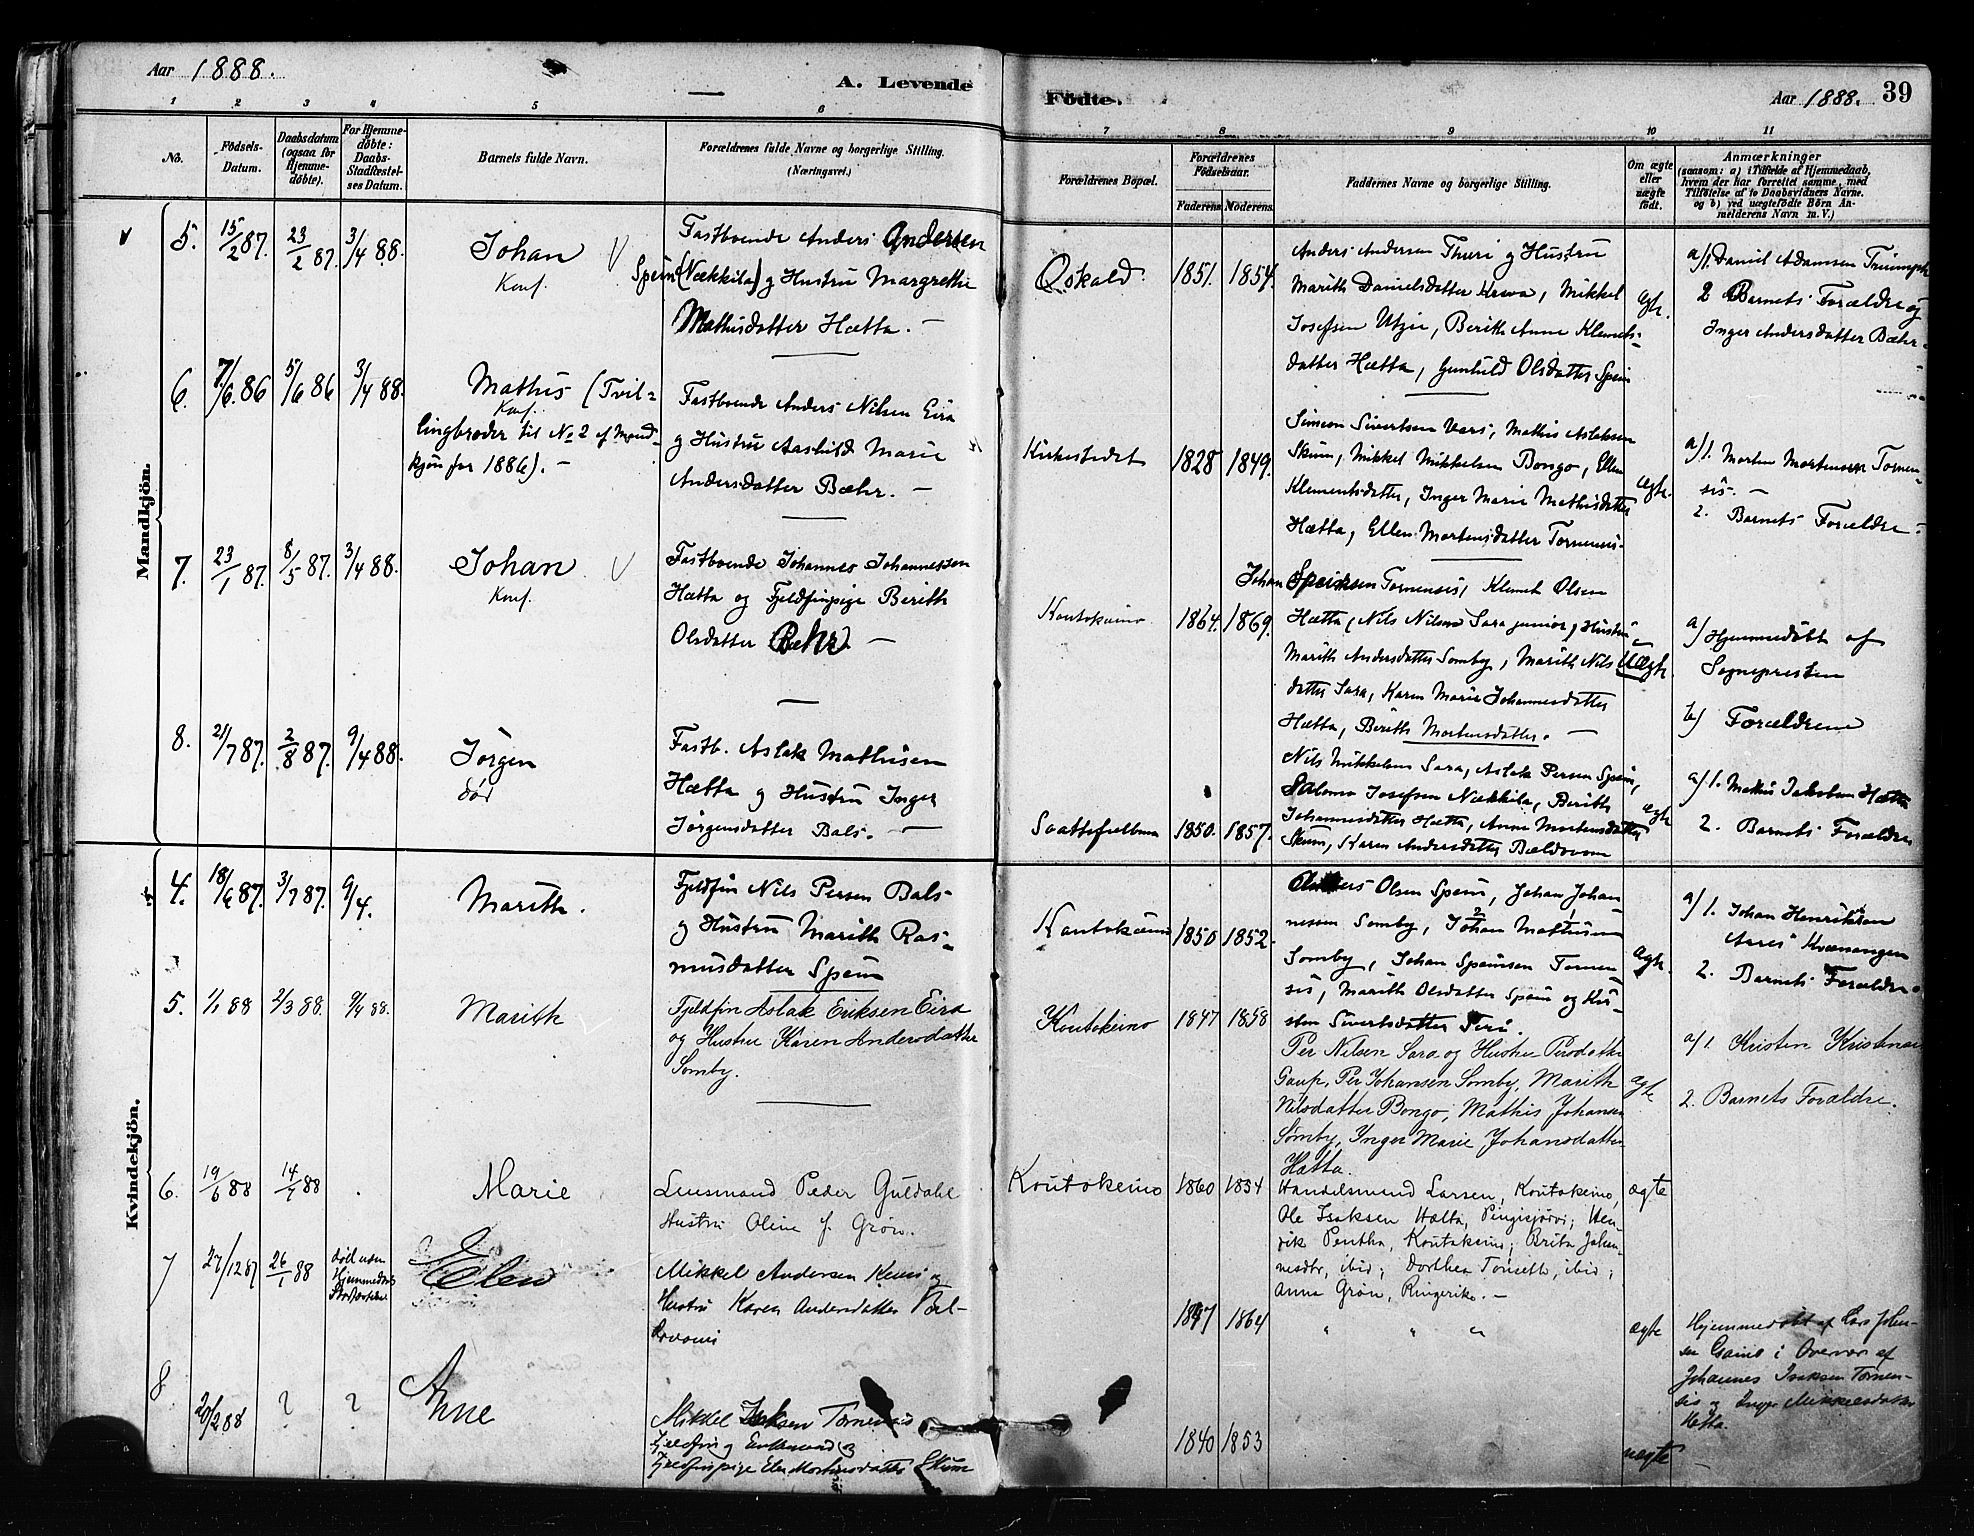 Aar 1888.
A. Levende
Fødte.
Aar 1888. 39
1 2 3 4 5 6 7 8 9 10 11
No.
Fødsels-
Datum.
Daabsdatum
(ogsaa for
Hjemme-
døbte).
For Hjemme-
døbte:
Daabs-
Stadfæstel-
ses Datum.
Barnets fulde Navn.
Forældrenes fulde Navne og borgerlige Stilling.
(Næringsvei.)
Forældrenes Bopæl.
Forældrenes
Fødselsaar.
Faderens Moderens
Faddernes Navne og borgerlige Stilling.
Om ægte
eller
uægte
født.
Anmærkninger
(saasom: a) i Tilfælde af Hjemmedaab,
hvem der har forrettet samme, med
Tilføielse af to Daabsvidners Navne.
og b) ved uægtefødte Børn An-
melderens Navn m. V.)
Mandkjön.
5. 15/2 87. 23/2 87. 3/4 88.
Johan
Konf.
Fastboende Anders Andersen
Spein (Nækkila) og Hustru Margrethe
Mathisdatter Hætta. —
Oskald. 1851. 1854.
Anders Andersen Thuri og Hustru
Marith Danielsdatter, Mikkel
Josefsen Utzi, Berith Anne Klemets-
datter Hætta, Gunhild Olsdatter Spein
ægte.
a/1. Daniel Adamsen Triumph
2 Barnets Forældre og
Inger Andersdatter Bæhr.
6. 7/6. 86 5/6 86 3/4 88.
Mathis (Tvil-
Konf.
lingbroder til No 2 af Mand-
kjøn for 1886). —
Fastboende Anders Nilsen Eira
og Hustru Aashild Marie
Andersdatter Bæhr. —
Kirkestedet 1828 1849.
Simeon Sivertsen Vars, Mathis Aslaksen
Skum, Mikkel Mikkelsen Bongo, Ellen
Klemetsdatter, Inger Marie Mathisdatter
Hætta, Ellen Mortensdatter Tornensis.
ægte.
a/1. Morten Mortensen Tornen-
sis. —
2. Barnets Forældre.
7. 23/1 87. 8/5 87. 3/4 88.
Johan
Konf.
Fastboende Johannes Johannessen
Hætta og Fjeldfinpige Berith
Olsdatter Bæhr. —
Koutokeino 1864. 1869.
Johan Speinsen Tornensis, Klemet Olsen
Hætta, Nils Nilsen Sara junior, Hustru
Marith Andersdatter Somby, Marith Nils
datter Sara, Karen Marie Johannesdatter
Hætta, Berith Mortensdatter. —
Uægte.
a/ Hjemmedøbt af
Sognepresten
b/ Forældrene
8. 21/7 87. 2/8 87. 9/4 88.
Jørgen
død
Fastb. Aslak Mathisen
Hætta og Hustru Inger
Jørgensdatter Bals. —
1850. 1857.
Nils Mikkelsen Sara, Aslak Persen Spein,
Salomo Josefsen Nækkila, Berith
Johannesdatter Hætta, Anne Mortensdatter
Skum, Karen Andersdatter Bældovuom
ægte
a/1. Mathis Jakobsen Hætta
2. Barnets Forældre
Kvindekjön.
4. 18/6 87. 3/7 87. 9/4.
Marith.
Fjeldfin Nils Persen Bals
og Hustru Marith Ras-
musdatter Spein
Koutokeino 1850 1852.
Anders Olsen Spein, Johan Johan-
nessen Somby, Johan Mathisen
Somby, Johan Speinsen Tornen-
sis, Marith Olsdatter Spein og Kir-
sten Sivertsdatter Teri.
ægte.
a/1. Johan Henriksen
Aarei Kvænangen
2. Barnets Forældre.
5. 1/1 88 2/3 88. 9/4 88.
Marith
Fjeldfin Aslak Eriksen Eira
og Hustru Karen Andersdatter
Somby.
Koutokeino 1847 1858
Per Nilsen Sara og Hustru Persdatter
Gaup, Per Johansen Somby, Marith
Nilsdatter Bongo, Mathis Johansen
Sømby, Inger Marie Johansdatter
Hætta.
ægte
a/1. Kristen Kristensen
2. Barnets Forældre.
6. 19/6 88 14/7 88
Marie
Lensmand Peder Guldahl
Hustru Oline f. Grøn.
Koutokeino 1860 1854
Handelsmand Larsen, Koutokeino,
Ole Isaksen Hætta, Pingisjärvi; Hen-
rik Pentha, Koutokeino; Brita Johan-
nesdtr, ibid; Dorthea Tonseth, ibid;
Anna Grøn, Ringerike. —
ægte
7 27/12 87 26/1 88
død uden
Hjemmedaabs
Stadfæstelse
Elen
Mikkel Andersen Kemi og
Hustru Karen Andersdatter Bæl-
dovuomi
1847 1864
" " "
ægte
Hjemmedøbt af Lars Johan-
sen Gaino i Overvær af
Johannes Isaksen Tornen-
sis og Inger Mikkelsdatter
Hætta.
8 20/2 88 ? ?
Anne
Mikkel Isaksen Tornensis
Fjeldfin og Enkemand og
Fjeldfinpige Elen Mortensdatter Skum
1840 1853
uægte
—